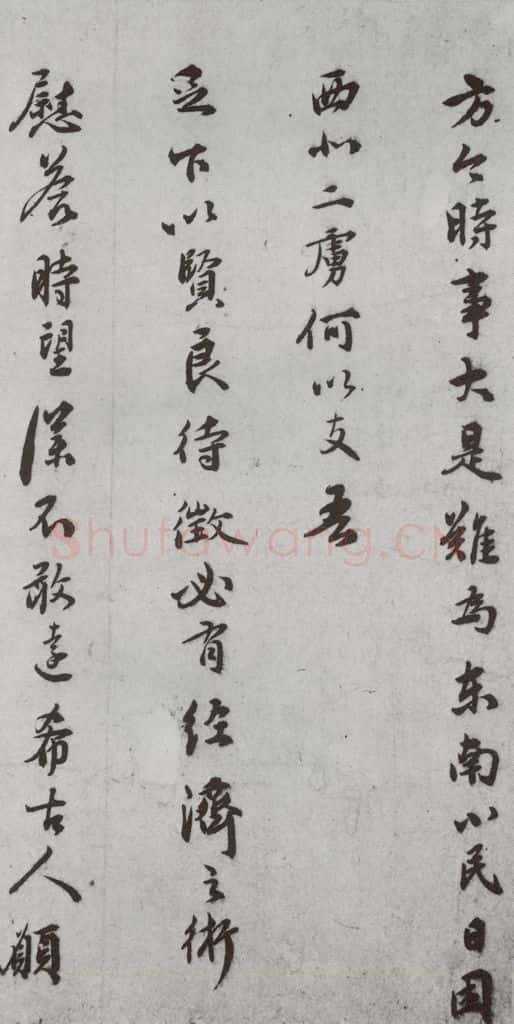 方今時事大是難為東南小民日困
西北二虜何以支吾
足下以賢良待徵必有經濟之術
慰荅時望僕不敢遠希古人願
Shufawang.CN